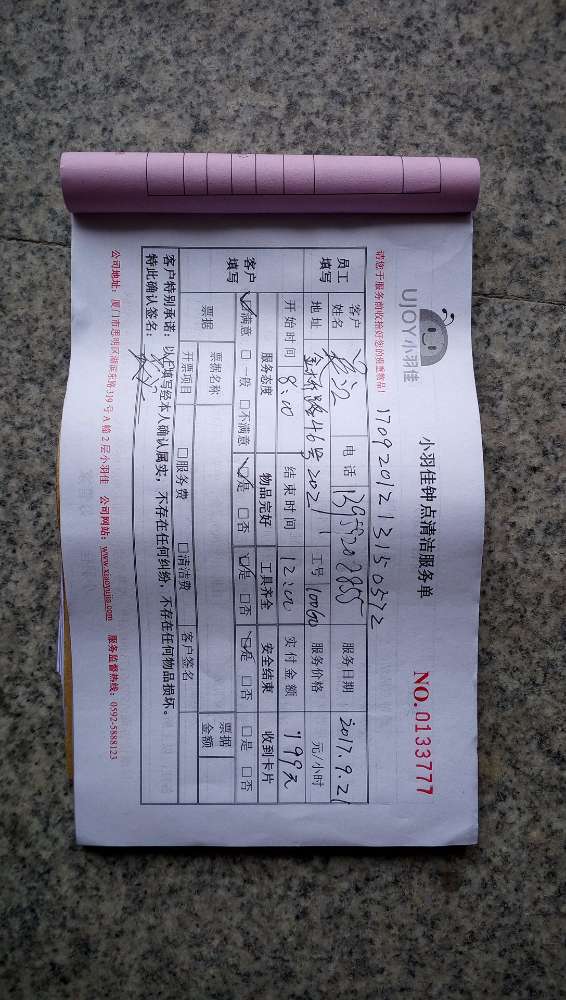 UJOY小羽佳
小羽佳钟点清洁服务单
NO. 0133777
请您于服务前收拾好您的贵重物品!
1709201213150572
员工填写
客户姓名
电话
服务日期 2017.9.21
地址 46号202
工号 10060 服务价格 元/小时
开始时间 8:00 结束时间 12:00 实付金额 199元
客户填写
服务态度 物品完好 工具齐全 安全结束 收到卡片
☑满意 □一般 □不满意 ☑是 □否 ☑是 □否 ☑是 □否 □是 □否
票据 票据名称 票据金额
开票项目 □服务费 □清洁费 客户签名
客户特别承诺:以上填写经本人确认属实,不存在任何纠纷,不存在任何物品损坏。
特此确认签名:
公司地址:厦门市思明区湖滨东路319号A幢2层小羽佳 公司网站:www.xiaoyujia.com 服务监督热线:0592-5888123